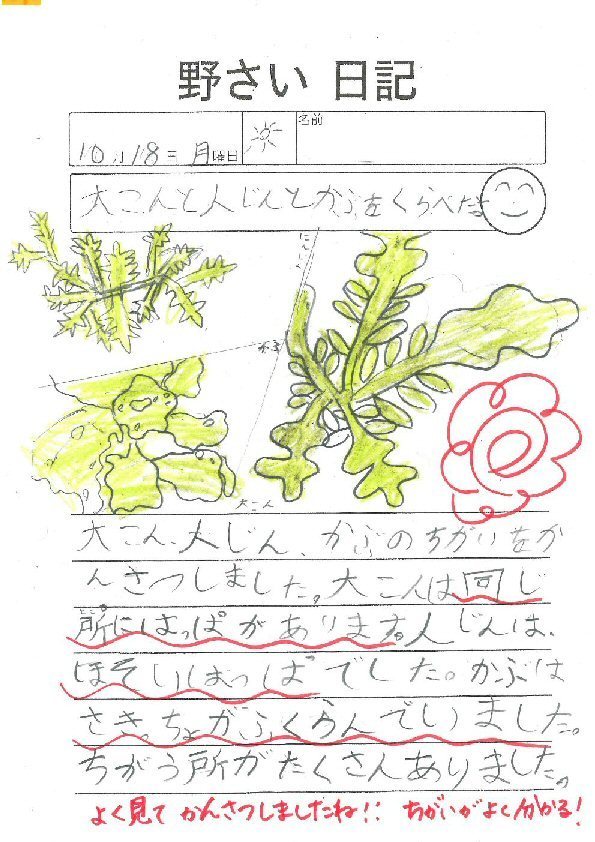 野さい 日記
10月18日 月曜日
名前
大こんと人じんとかぶをくらべたよ
にんじん
かぶ
大こん
大こん、人じん、かぶのちがいをか
んさつしました。大こんは同じ
所にはっぱがあります。人じんは、
ほそいはっぱでした。かぶは
さきっちょがふくらんでいました。
ちがう所がたくさんありました。
よく見て かんさつしましたね!! ちがいがよく分かる!